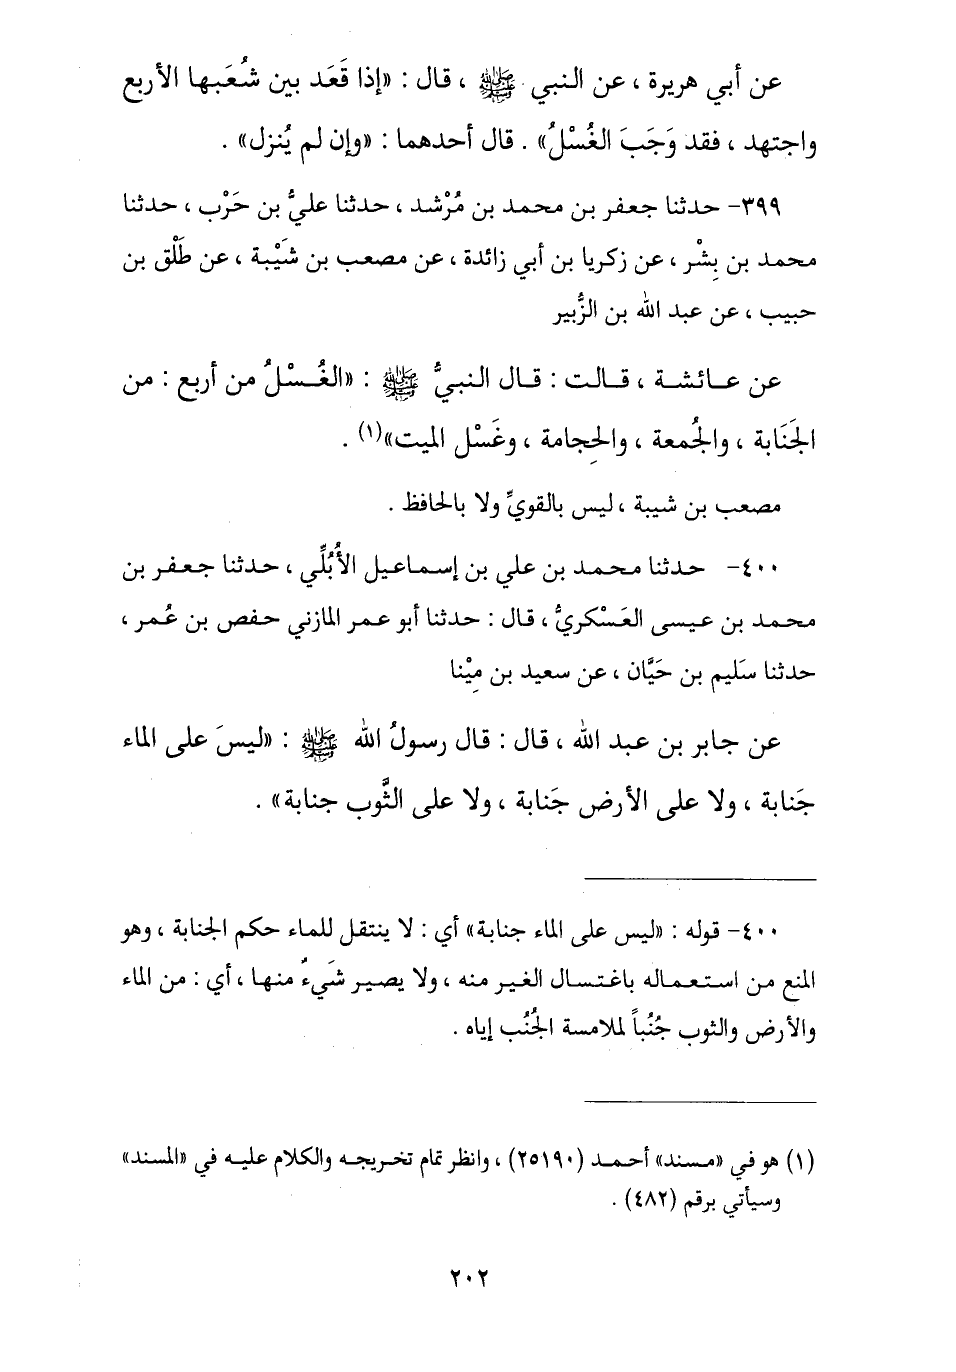 عن أبي هريرة ، عن النبي ﷺ ، قال : «إذا قَعَد بين شُعَبها الأربع
واجتهد ، فقد وَجَبَ الغُسْلُ» . قال أحدهما : «وإن لم يُنزل» .
٣٩٩- حدثنا جعفر بن محمد بن مُرْشد ، حدثنا عليُّ بن حَرْب ، حدثنا
محمد بن بِشْر ، عن زكريا بن أبي زائدة ، عن مصعب بن شَيْبة ، عن طَلْق بن
حبيب ، عن عبد الله بن الزُّبير
عن عائشة ، قالت : قال النبيُّ ﷺ : «الغُسْلُ من أربع : من
الجَنَابة ، والجُمعة ، والحِجامة ، وغَسْل الميت»(١) .
مصعب بن شيبة ، ليس بالقويِّ ولا بالحافظ .
٤٠٠- حدثنا محمد بن علي بن إسماعيل الأُبُلِّي ، حدثنا جعفر بن
محمد بن عيسى العَسْكريُّ ، قال : حدثنا أبو عمر المازني حفص بن عُمر ،
حدثنا سَليم بن حَيَّان ، عن سعيد بن مِيْنا
عن جابر بن عبد الله ، قال : قال رسولُ الله ﷺ : «ليسَ على الماء
جَنابة ، ولا على الأرض جَنابة ، ولا على الثَّوب جنابة» .
٤٠٠- قوله : «ليس على الماء جنابة» أي : لا ينتقل للماء حكم الجنابة ، وهو
المنع من استعماله باغتسال الغير منه ، ولا يصير شَيءٌ منها ، أي : من الماء
والأرض والثوب جُنُباً لملامسة الجُنُب إياه .
(١) هو في «مسند» أحمد (٢٥١٩٠) ، وانظر تمام تخريجه والكلام عليه في «المسند»
وسيأتي برقم (٤٨٢) .
٢٠٢